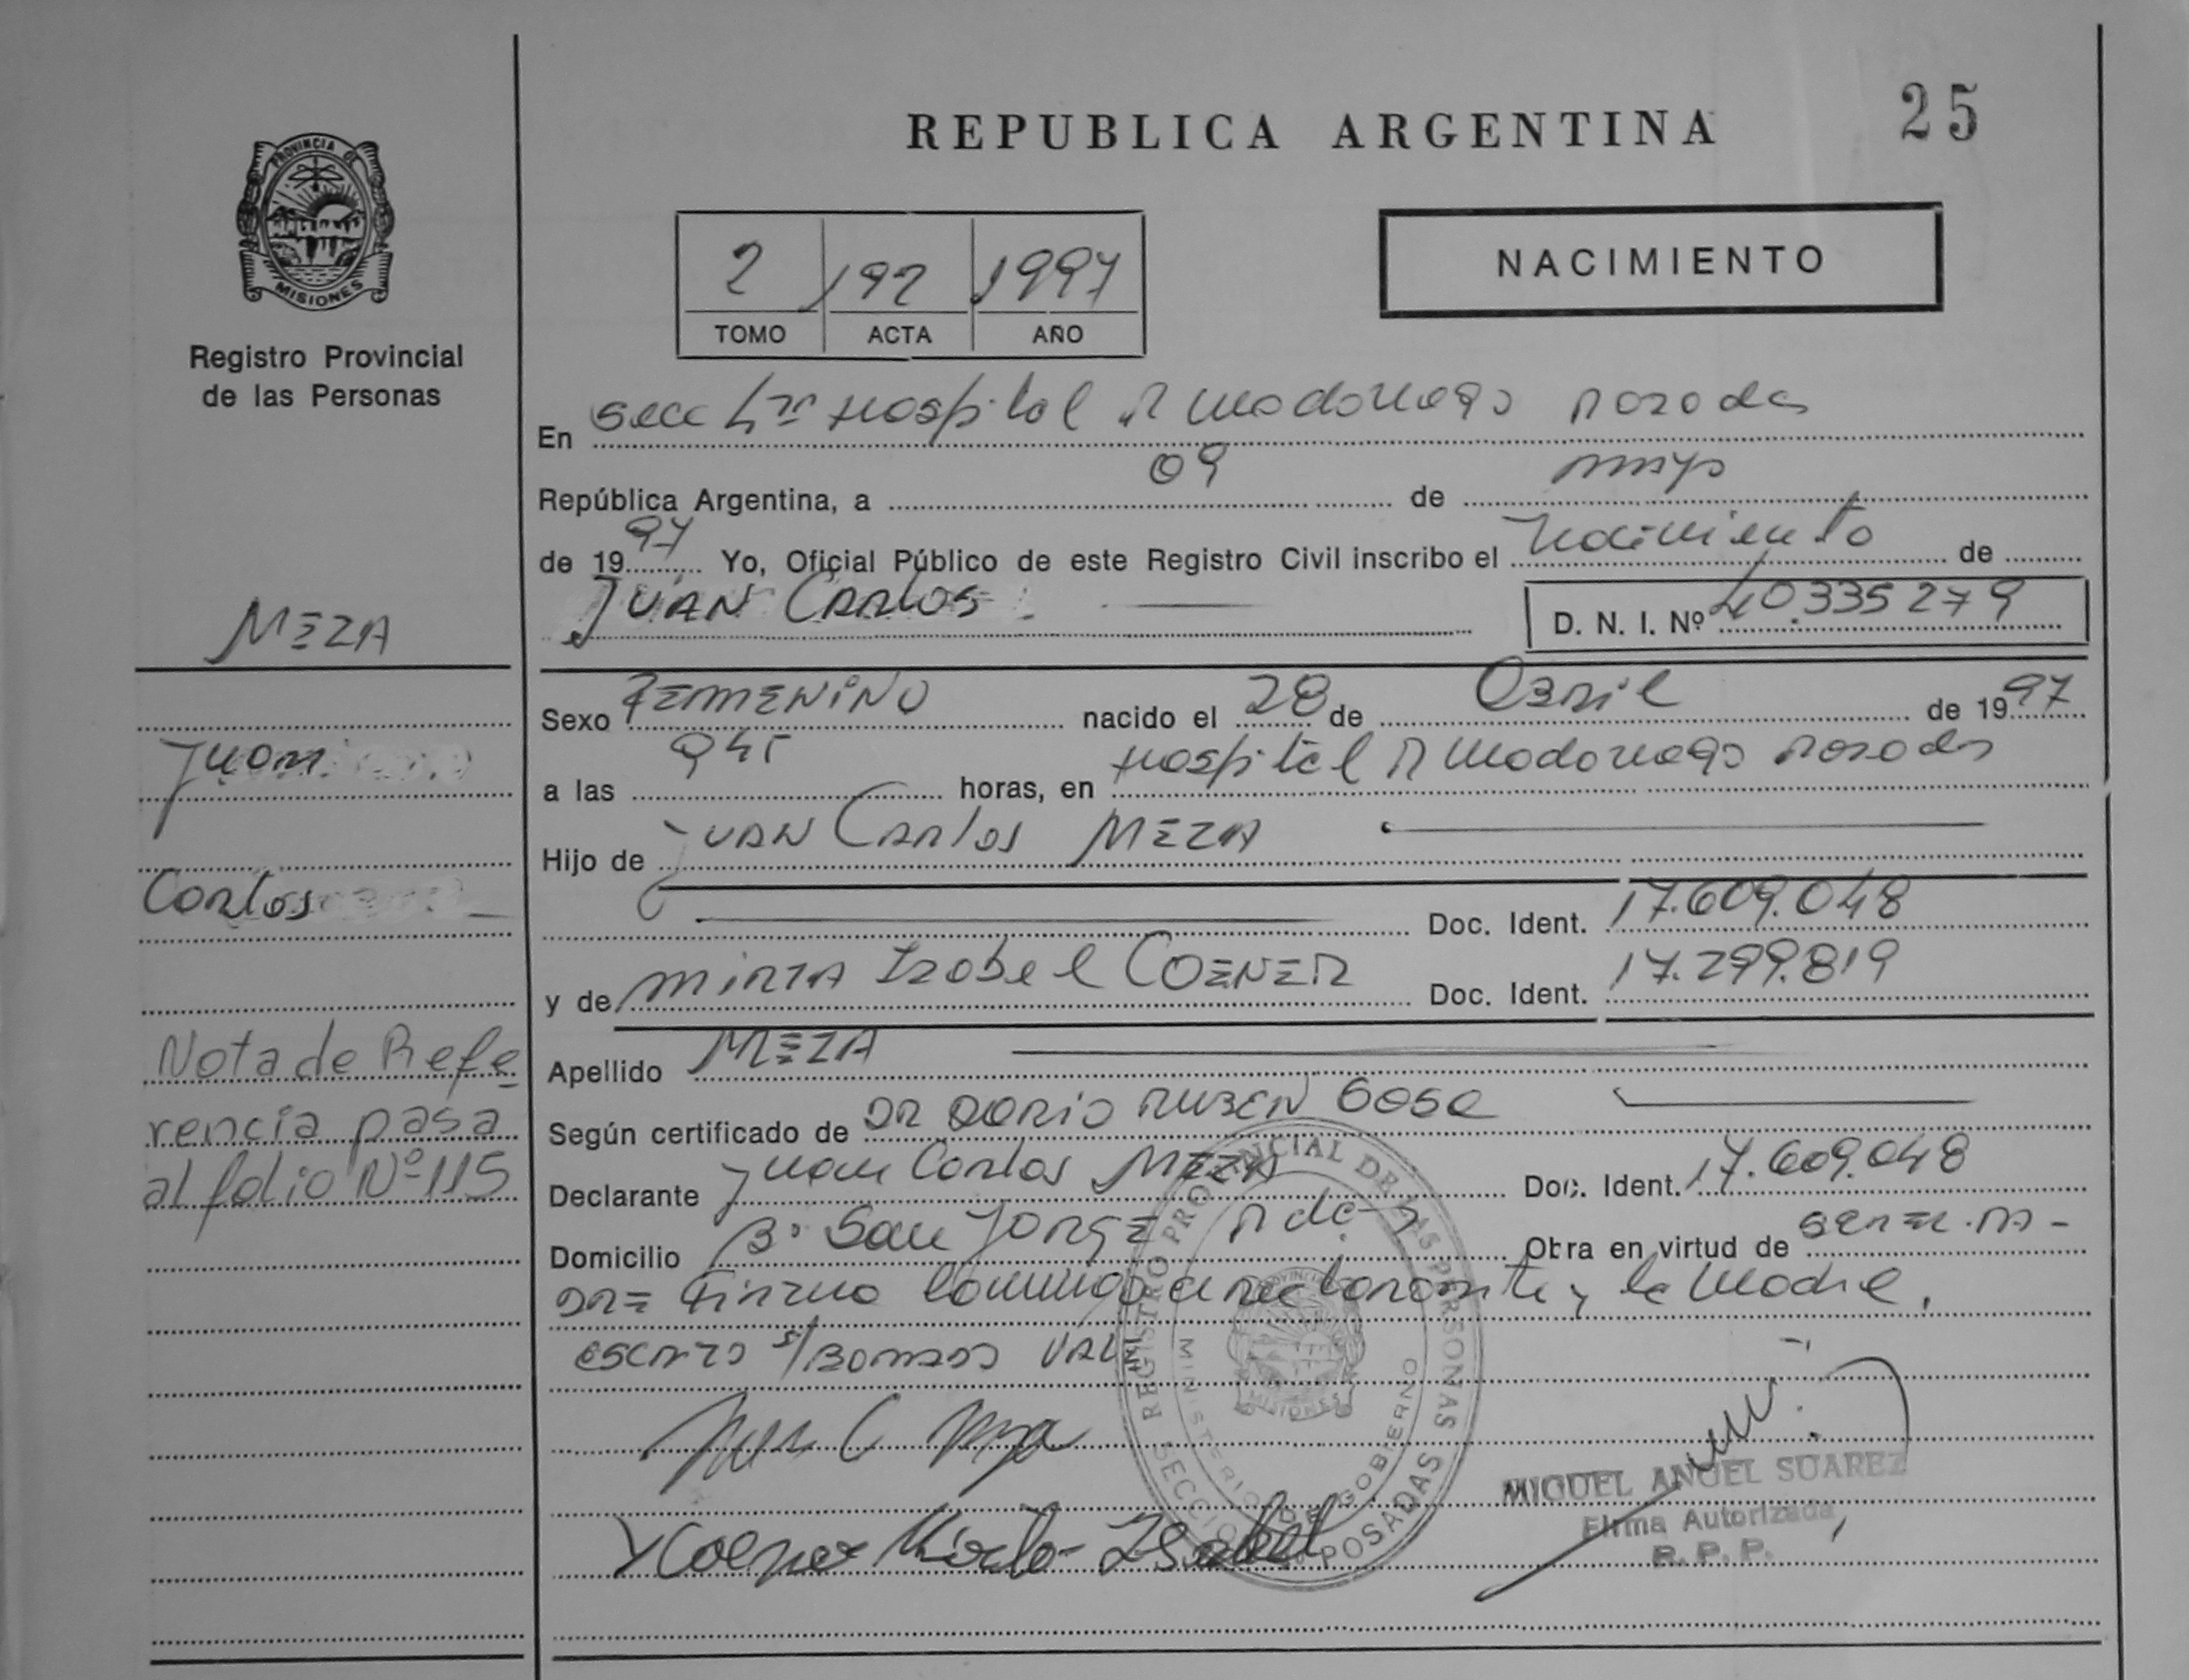 25
REPUBLICA ARGENTINA
PROVINCIA DE
MISIONES
Registro Provincial
de las Personas
NACIMIENTO
2 192 1997
TOMO ACTA AÑO
En Secc Hospital R Madariaga Posadas
República Argentina, a 09 de mayo
de 1997 Yo, Oficial Público de este Registro Civil inscribo el Nacimiento de
JUAN CARLOS
D. N. I. Nº 40.335279
MEZA
Sexo FEMENINO nacido el 28 de Abril de 1997
Juan
a las 945 horas, en Hospital R Madariaga Posadas
Hijo de JUAN CARLOS MEZA
Carlos
Doc. Ident. 17.609.048
y de MIRTA Izabel COENER Doc. Ident. 17.299.819
Nota de Refe
rencia pasa
al folio Nº 115
Apellido MEZA
Según certificado de DR DARIO RUBEN SOSA
Declarante Juan Carlos MEZA Doc. Ident. 17.609.048
Domicilio Bº San JORGE Pdas Obra en virtud de
DRE Firma declarante y la Madre,
escrito s/BORRADO VALE
REGISTRO PROVINCIAL DE LAS PERSONAS
MINISTERIO DE GOBIERNO
SECCION POSADAS
MISIONES
MIGUEL ANGEL SUAREZ
Firma Autorizada
R. P. P.
Coener Mirta Isabel